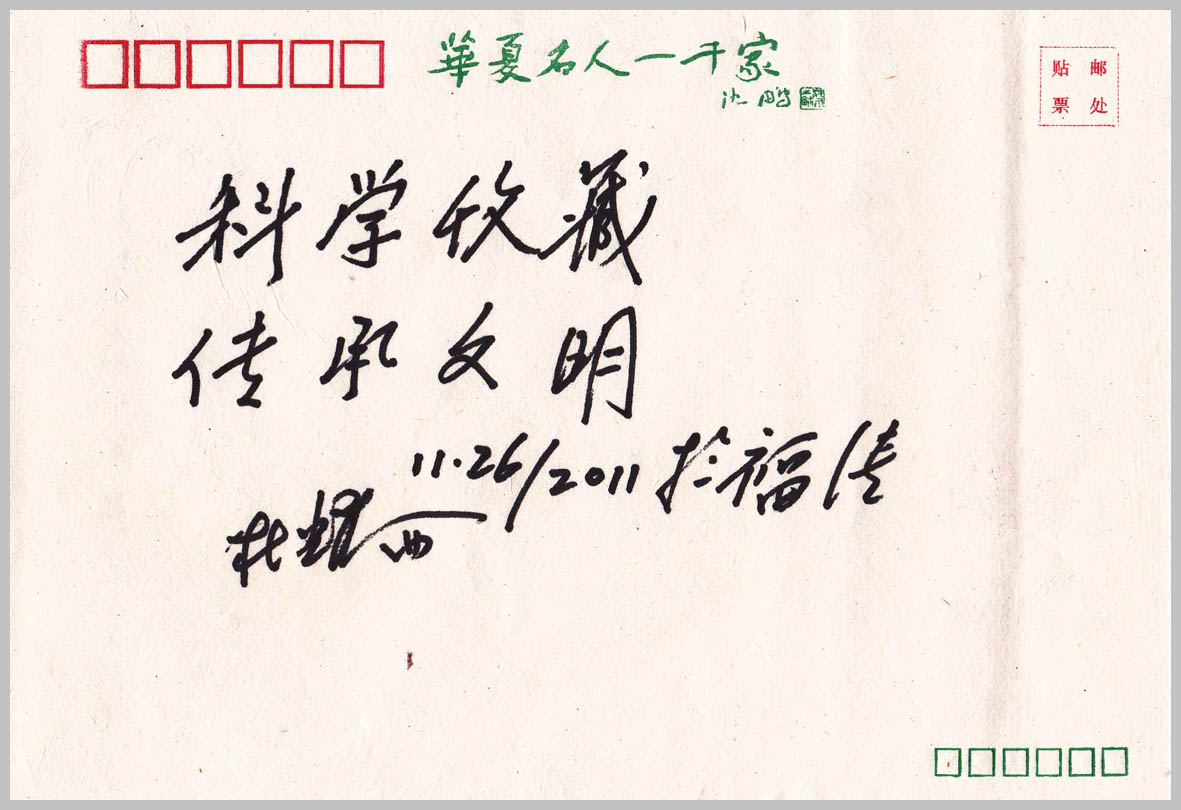 華夏名人一千家
沈鹏
贴 邮
票 处
科学收藏
传承文明
11·26/2011 於福清
杜
西